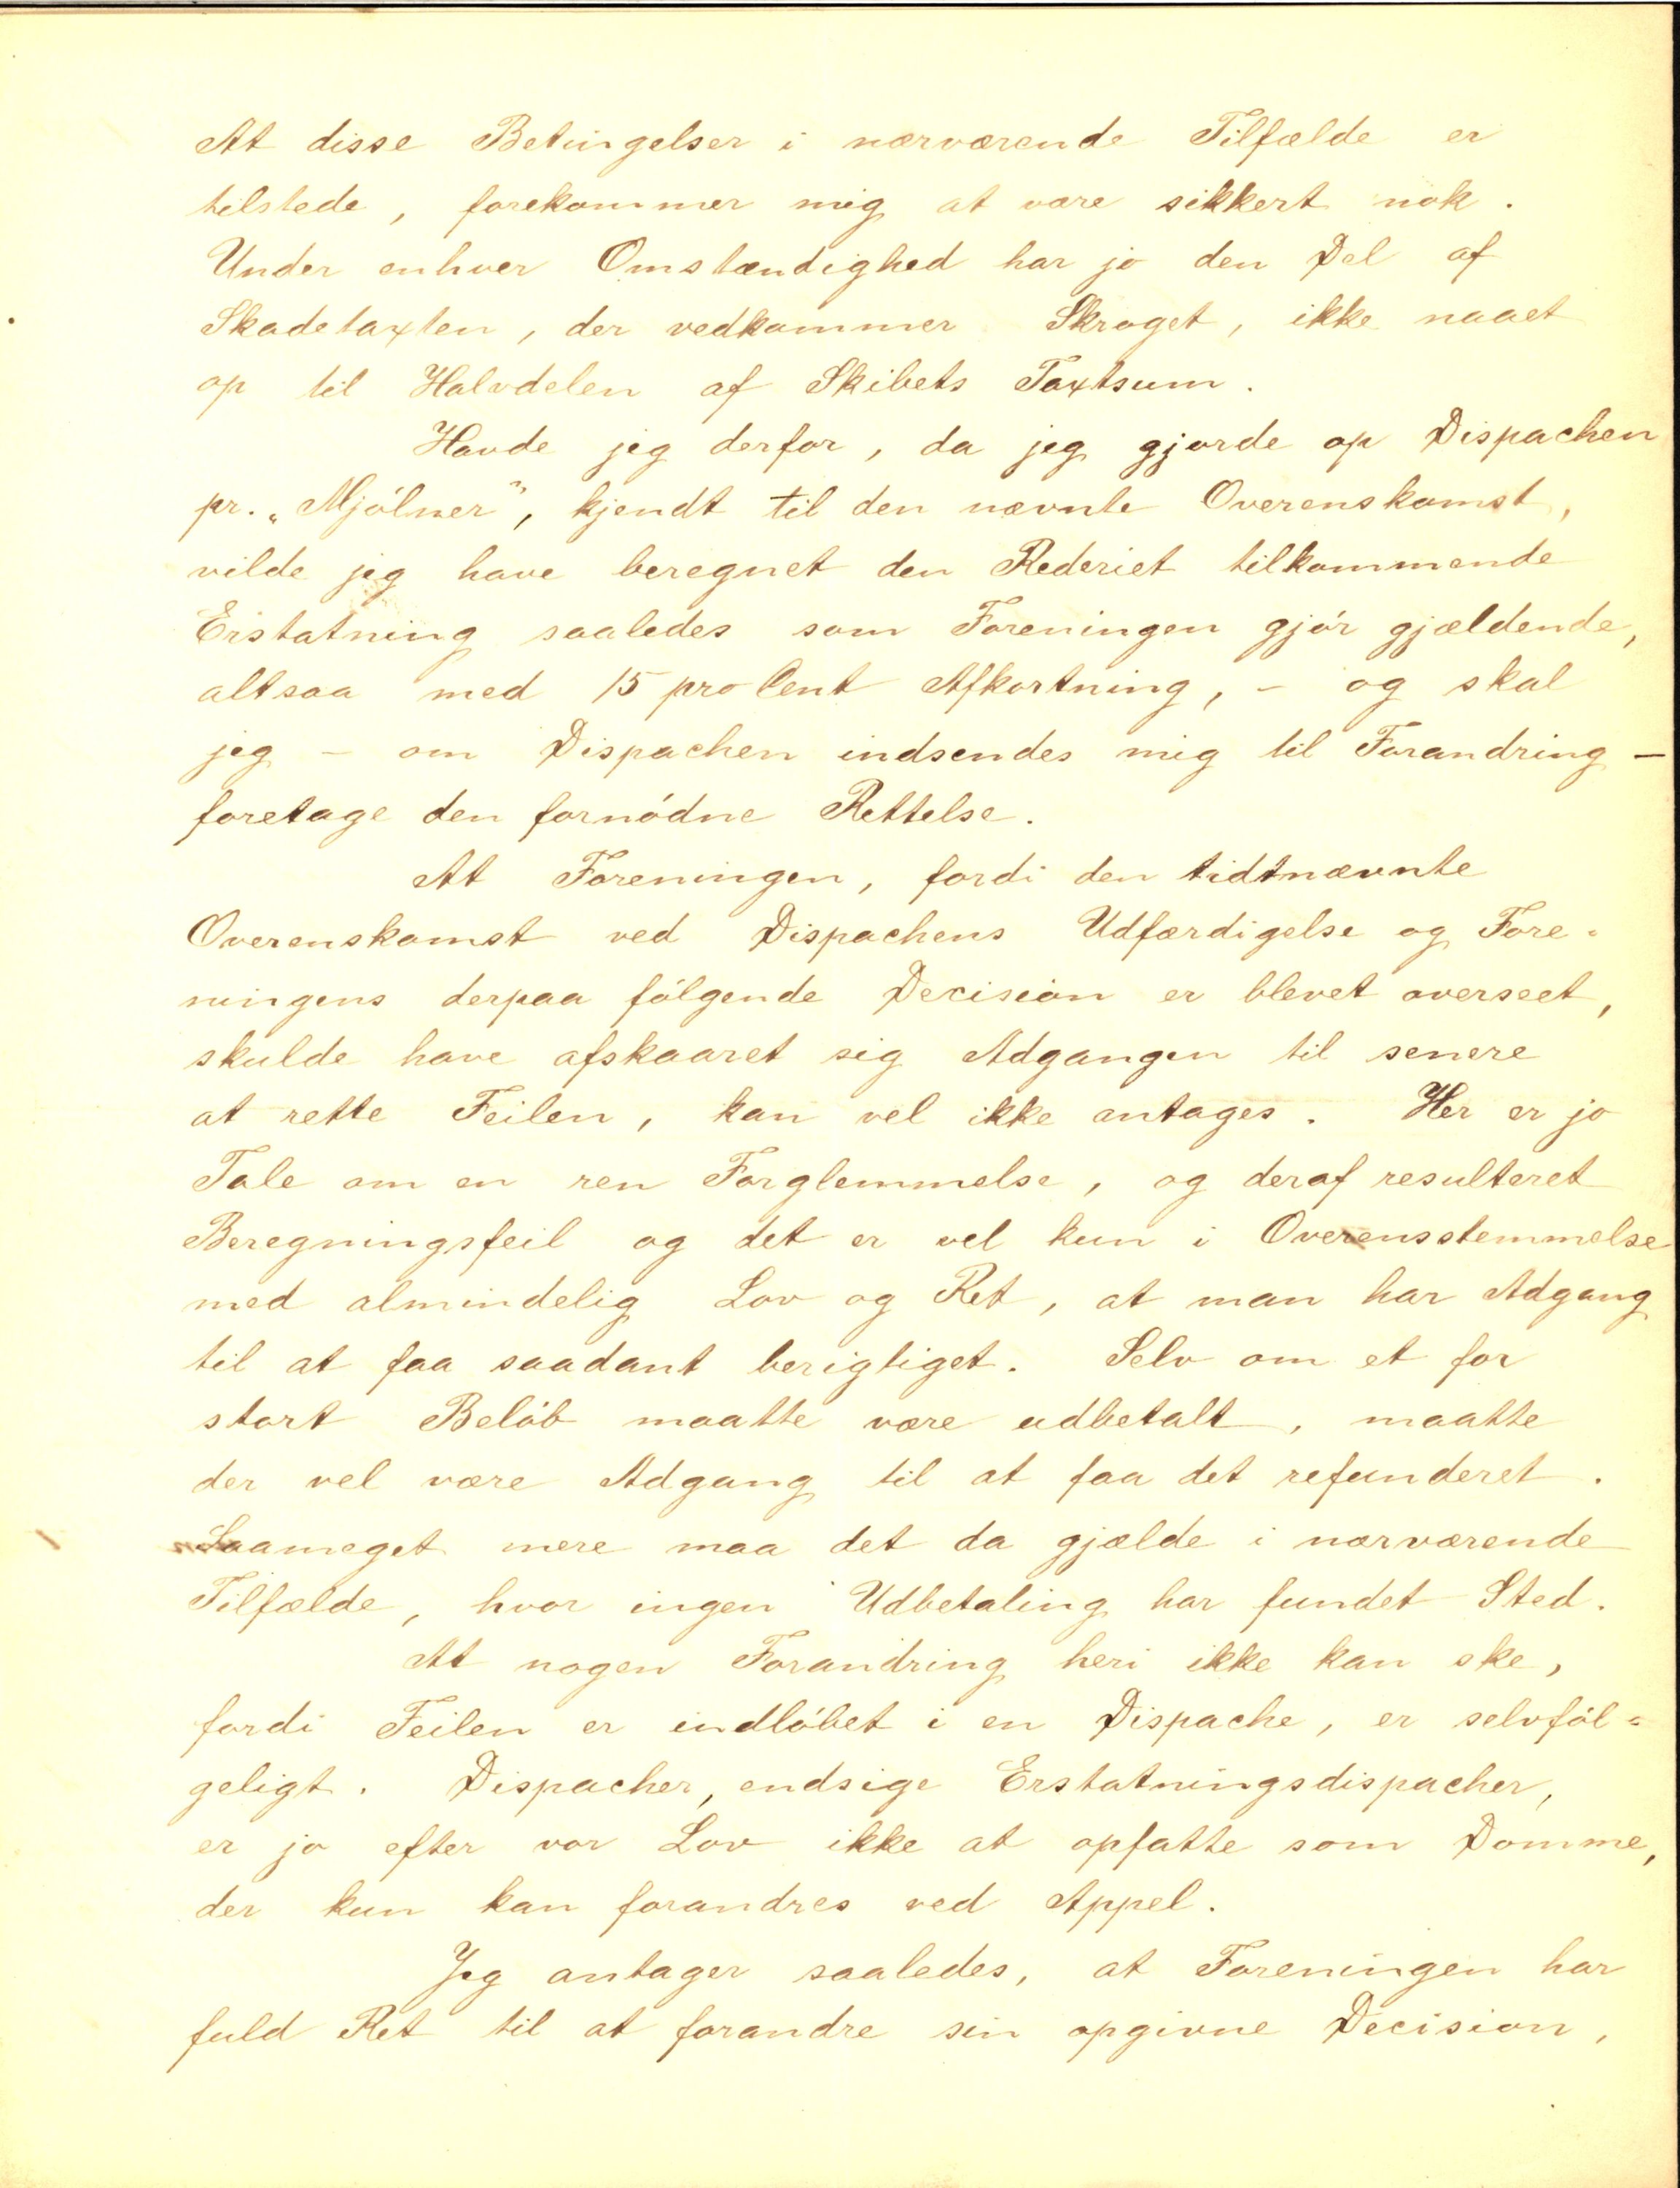 At disse Betingelser i nærværende Tilfælde er
tilstede, forekommer mig at være sikkert nok.
Under enhver Omstændighed har jo den Del af
Skadetaxten, der vedkommer Skroget, ikke naaet
op til Halvdelen af Skibets Taxtsum.
Havde jeg derfor, da jeg gjorde op Dispachen
pr. „Mjólner", kjendt til den nævnte Overenskomst,
vilde jeg have beregnet den Rederiet tilkommende
Erstatning saaledes som Foreningen gjór gjældende,
altsaa med 15 pro Cent Afkortning, - og skal
jeg - om Dispachen indsendes mig til Forandring -
foretage den fornódne Rettelse.
At Foreningen, fordi den tidtnævnte
Overenskomst ved Dispachens Udfærdigelse og Fore=
ningens derpaa fólgende Decision er blevet overseet,
skulde have afskaaret sig Adgangen til senere
at rette Feilen, kan vel ikke antages. Her er jo
Tale om en ren Forglemmelse, og deraf resulteret
Beregningsfeil og det er vel kun i Overensstemmelse
med almindelig Lov og Ret, at man har Adgang
til at faa saadant berigtiget. Selv om et for
stort Belób maatte være udbetalt, maatte
der vel være Adgang til at faa det refunderet.
Saameget mere maa det da gjælde i nærværende
Tilfælde, hvor ingen Udbetaling har fundet Sted.
At nogen Forandring heri ikke kan ske,
fordi Feilen er indlóbet i en Dispache, er selvfól=
geligt. Dispacher, endsige Erstatningsdispacher,
er jo efter vor Lov ikke at opfatte som Domme,
der kun kan forandres ved Appel.
Jeg antager saaledes, at Foreningen har
fuld Ret til at forandre sin opgivne Decision,